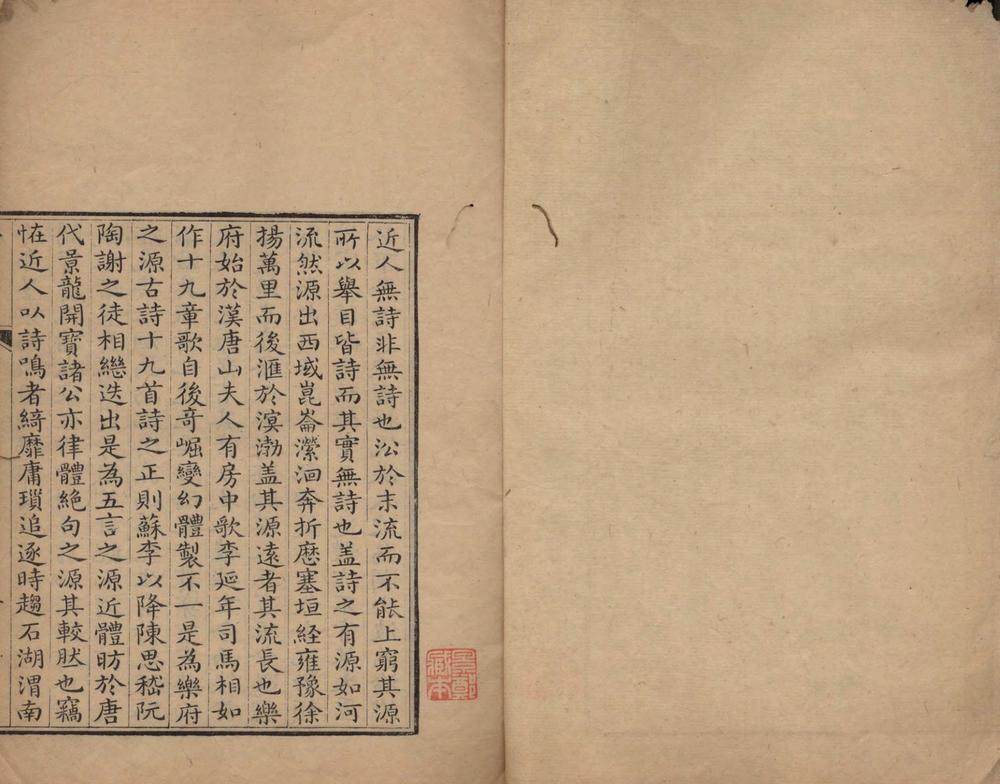 近人無詩非無詩也㳂於末流而不能上窮其源
所以舉目皆詩而其實無詩也盖詩之有源如河
流然源出西域崑崙瀠洄奔折歷塞垣經雍豫徐
揚萬里而後滙於溟渤盖其源遠者其流長也樂
府始於漢唐山夫人有房中歌李延年司馬相如
作十九章歌自後奇崛變幻體製不一是為樂府
之源古詩十九首詩之正則蘇李以降陳思嵇阮
陶謝之徒相繼迭出是為五言之源近體昉於唐
代景龍開寶諸公亦律體絕句之源其較然也竊
恠近人以詩鳴者綺靡庸瑣追逐時趨石湖渭南
長樂鄭
藏本